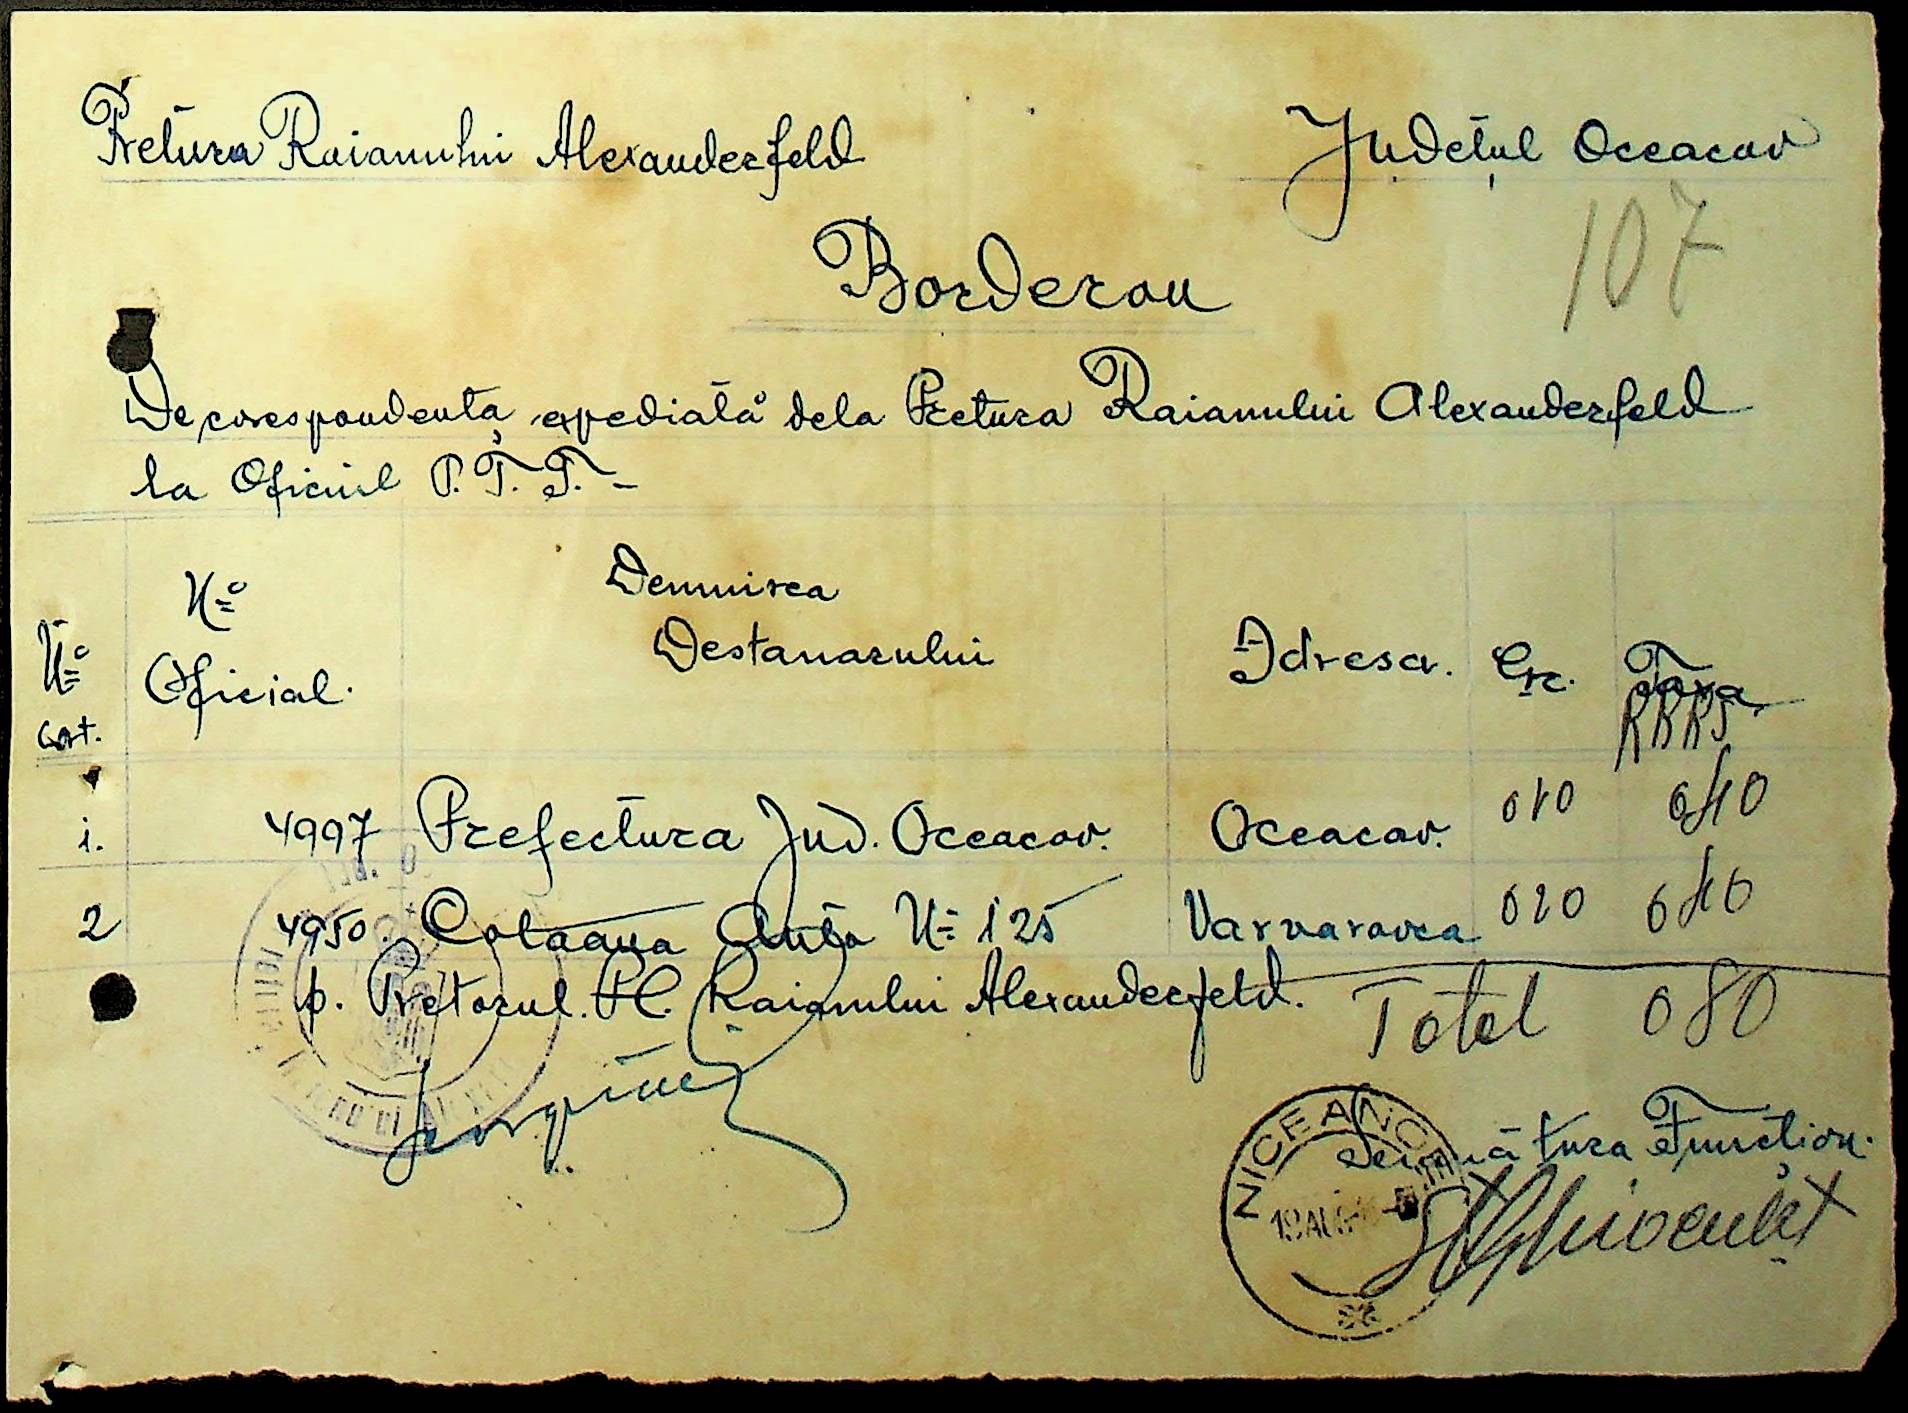 Pretura Raianului Alexanderfeld
Județul Oceacov
107
Borderou
De corespondența expediată dela Pretura Raianului Alexanderfeld
la Oficiul P.T.T. -
No crt.
No Oficial.
Denumirea Destanarului
Adresa.
Grc.
Taxa
1. 4997 Prefectura Jud. Oceacov. Oceacov. 010 040
2 4950. Coloana Auto No 125 Varvarovca 020 040
p. Pretorul. Pl. Raianului Alexanderfeld. Total 080
Semnătura Funcțion.
NICEANOE
19 AUG